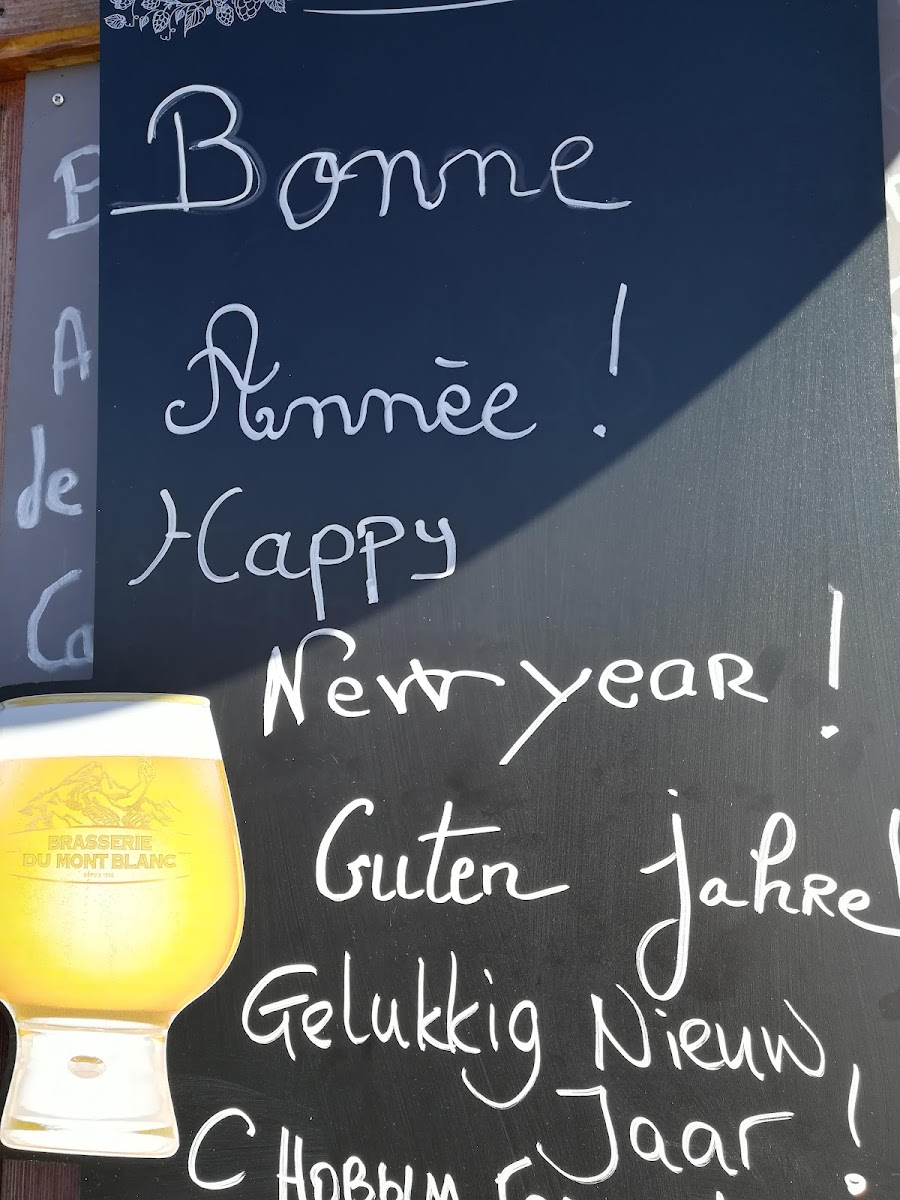 Bonne
Année !
Happy
New year !
Guten Jahre!
Gelukkig Nieuw
Jaar !
С Новым
de
BRASSERIE
DU MONT BLANC